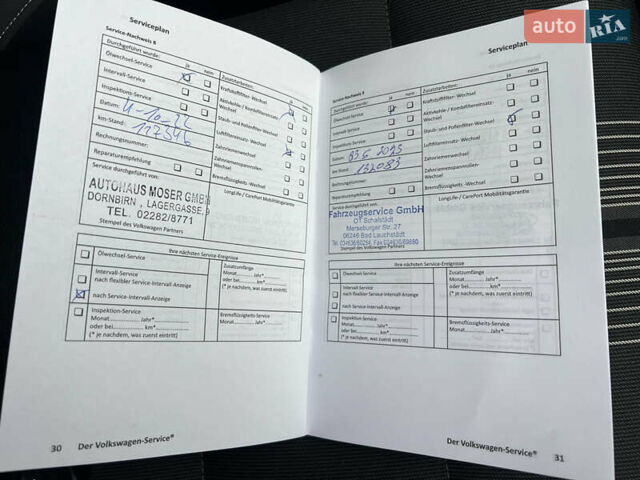 auto RIA .com
Serviceplan
Service-Nachweis 8
Durchgeführt wurde: ja nein Zusatzarbeiten: ja nein
Ölwechsel-Service
Intervall-Service
Inspektions-Service
Datum: 11-10-22
km-Stand: 117546
Rechnungsnummer:
Reparaturempfehlung
Kraftstofffilter-Wechsel
Aktivkohle / Kombifiltereinsatz-Wechsel
Staub- und Pollenfilter-Wechsel
Luftfiltereinsatz-Wechsel
Zahnriemenwechsel
Zahnriemenspannrollen-Wechsel
Bremsflüssigkeits-Wechsel
Service durchgeführt von:
LongLife / CarePort Mobilitätsgarantie
AUTOHAUS MOSER GMBH
DORNBIRN, LAGERGASSE,
TEL. 02282/8771
Stempel des Volkswagen Partners
Ihre nächsten Service-Ereignisse
Ölwechsel-Service
Intervall-Service
nach flexibler Service-Intervall-Anzeige
nach Service-Intervall-Anzeige
Inspektion-Service
Monat Jahr*
oder bei km*
(* je nachdem, was zuerst eintritt)
Zusatzumfänge
Monat Jahr*
oder bei km*
(* je nachdem, was zuerst eintritt)
Bremsflüssigkeits-Service
Monat Jahr*
30 Der Volkswagen-Service®
Serviceplan
Service-Nachweis 9
Durchgeführt wurde: ja nein Zusatzarbeiten: ja nein
Ölwechsel-Service
Intervall-Service
Inspektions-Service
Datum:
km-Stand: 132083
Rechnungsnummer:
Reparaturempfehlung
Kraftstofffilter-Wechsel
Aktivkohle / Kombifiltereinsatz-Wechsel
Staub- und Pollenfilter-Wechsel
Luftfiltereinsatz-Wechsel
Zahnriemenwechsel
Zahnriemenspannrollen-Wechsel
Bremsflüssigkeits-Wechsel
Service durchgeführt von:
LongLife / CarePort Mobilitätsgarantie
Fahrzeugservice GmbH
OT Schafstädt
Merseburger Str. 27
06246 Bad Lauchstädt
Stempel des Volkswagen Partners
Ihre nächsten Service-Ereignisse
Ölwechsel-Service
Intervall-Service
nach flexibler Service-Intervall-Anzeige
nach Service-Intervall-Anzeige
Inspektion-Service
Monat Jahr*
oder bei km*
(* je nachdem, was zuerst eintritt)
Zusatzumfänge
Monat Jahr*
oder bei km*
(* je nachdem, was zuerst eintritt)
Bremsflüssigkeits-Service
Monat Jahr*
Der Volkswagen-Service® 31